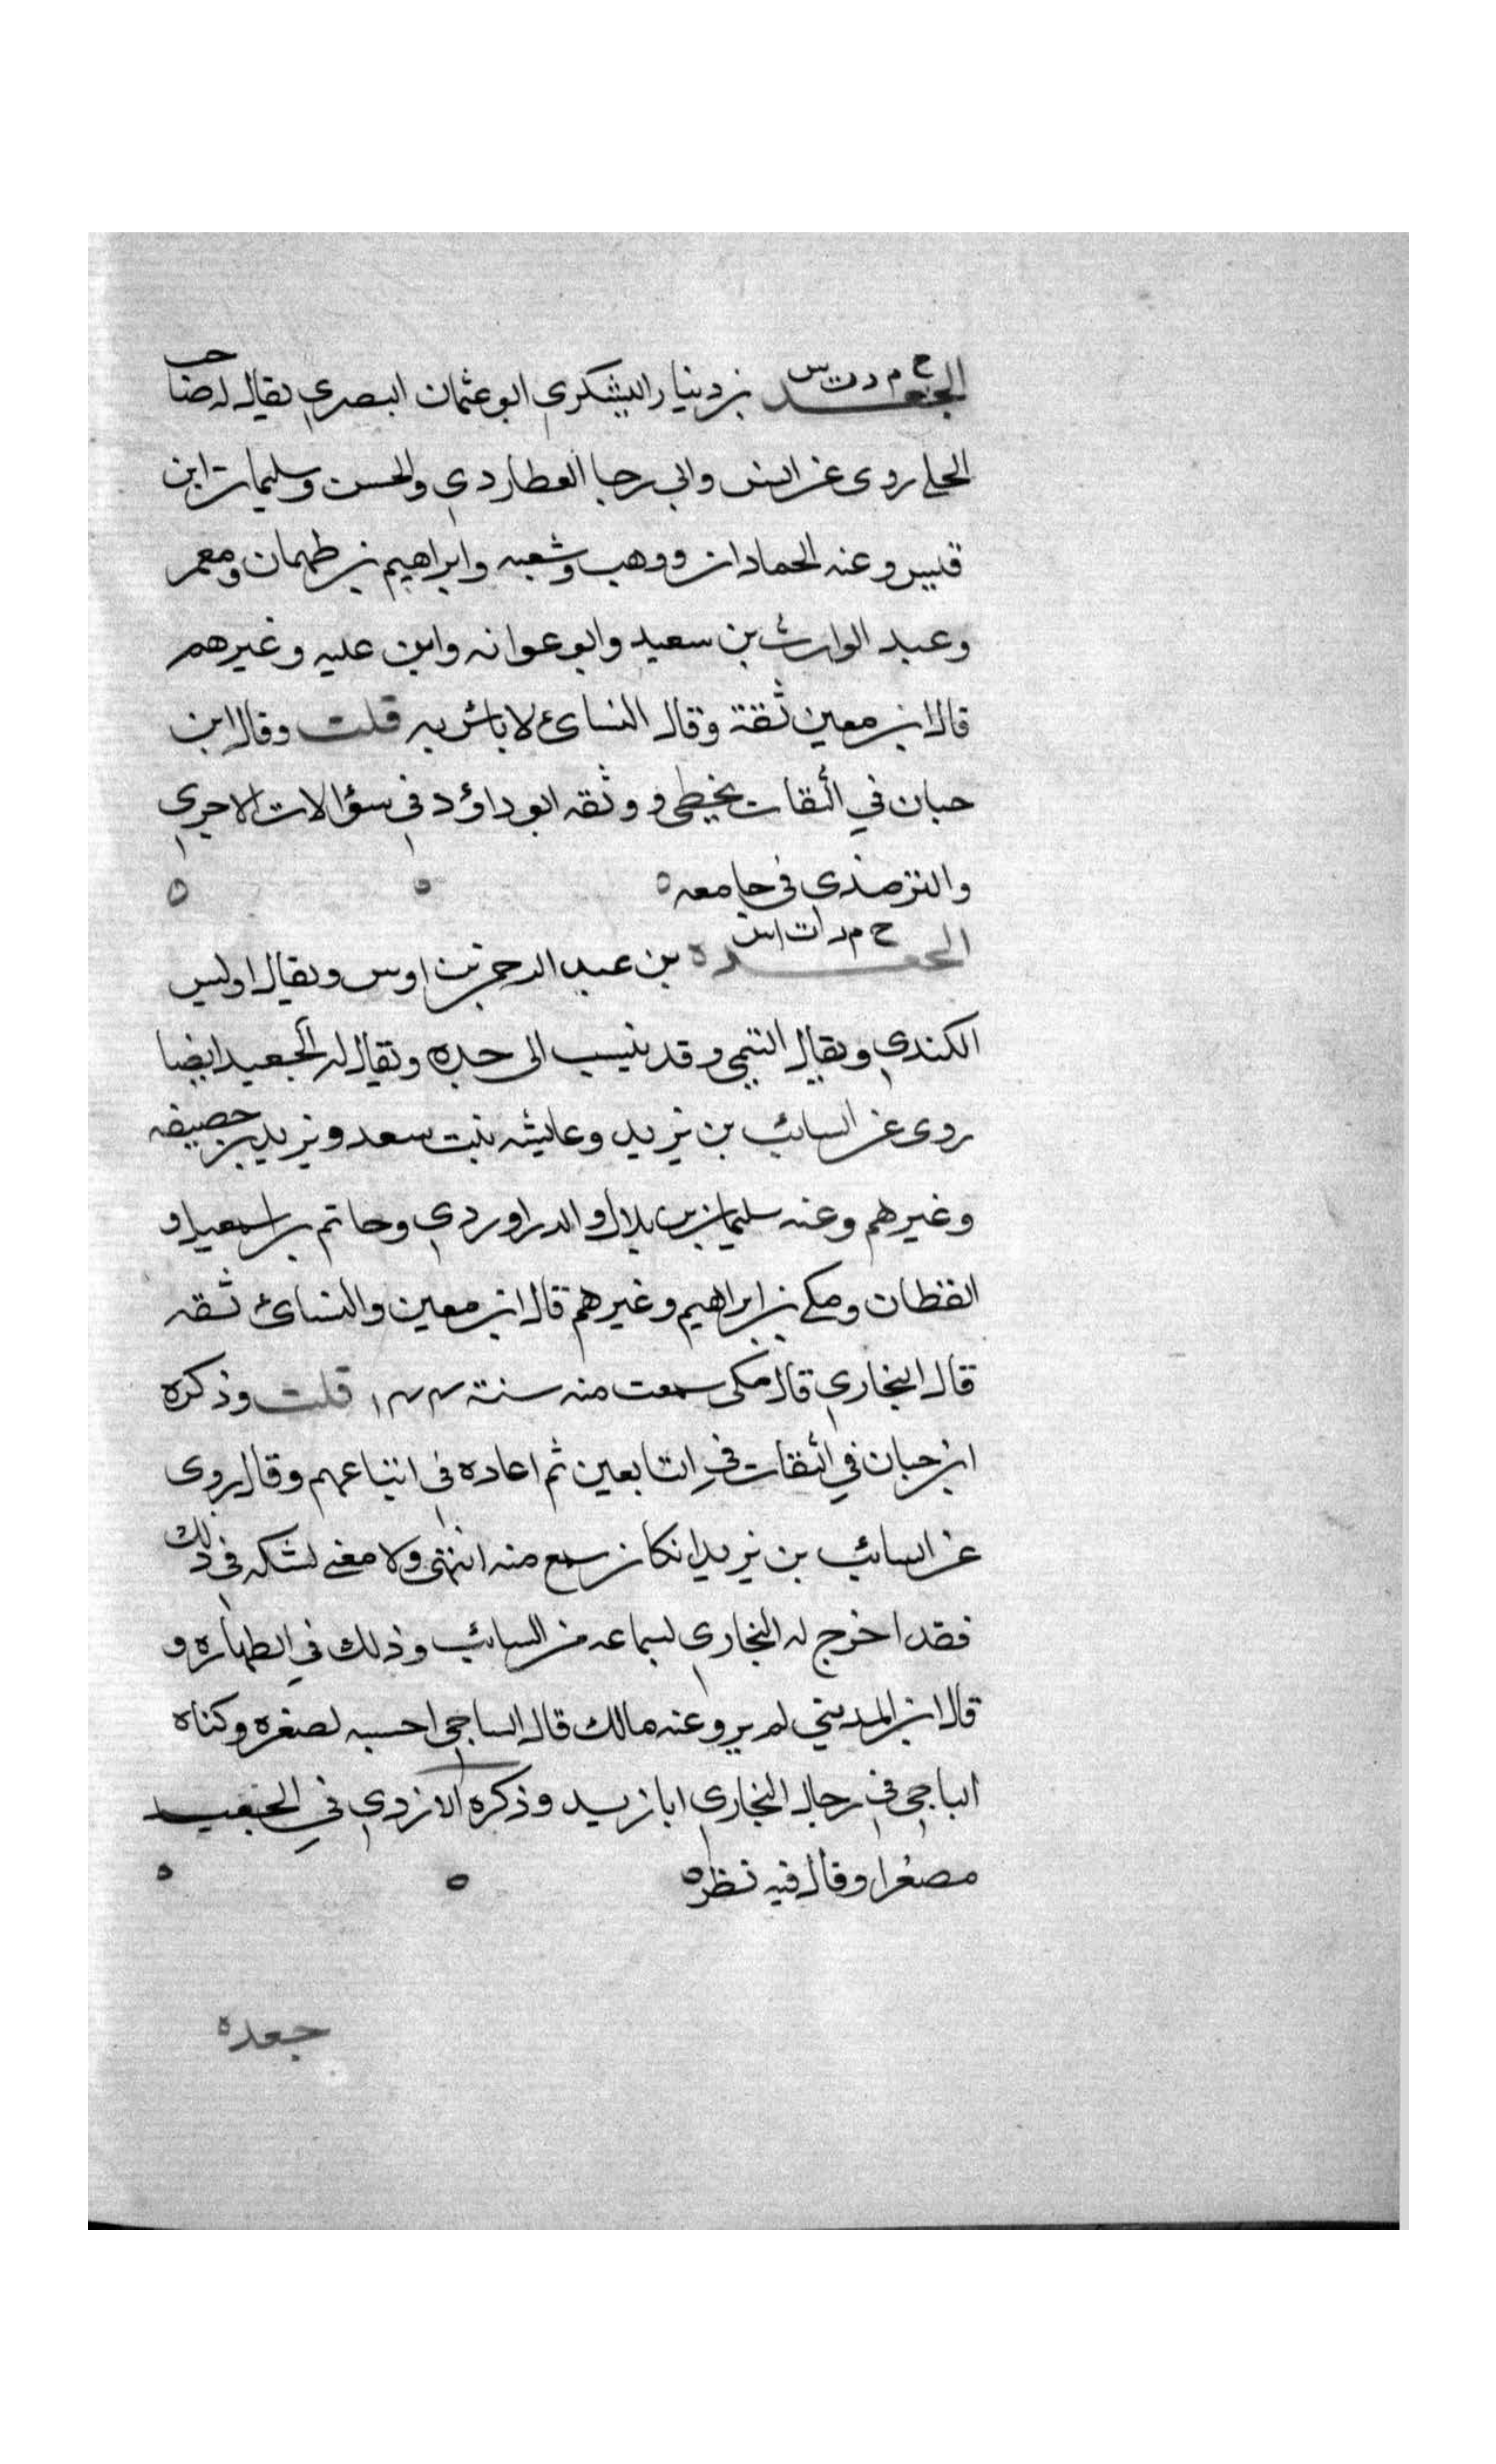 خ م د ت س
الجعد بن دينار اليشكري ابو عثمان البصري يقال له صاحب
الحلى روى عن انس وابي رجا العطاردي والحسن وسليمان ابن
قيس وعنه الحمادان ووهيب وشعبه وابراهيم بن طهمان ومعمر
وعبد الوارث بن سعيد وابو عوانه وابن عليه وغيرهم
قال ابن معين ثقة وقال النسائ لا باس به قلت وقال ابن
حبان في الثقات يخطى ووثقه ابو داؤد في سؤالات الاجرى
والترمذي في جامعه ٥
خ م د ت س
الجعد بن عبد الرحمن بن اوس ويقال اويس
الكندي ويقال التيمي وقد ينسب الى جده ويقال له الجعيد ايضا
روى عن السائب بن يزيد وعايشه بنت سعد ويزيد بن خصيفه
وغيرهم وعنه سليمان بن بلال والدراوردي وحاتم بن اسمعيل و
القطان ومكي بن ابراهيم وغيرهم قال ابن معين والنسائ ثقه
قال البخاري قال مكى سمعت منه سنة ١٤٤ قلت وذكره
ابن حبان في الثقات في التابعين ثم اعاده في اتباعهم وقال يروى
عن السائب بن يزيد ان كان سمع منه انتهى ولا معنى لشكه في ذلك
فقد اخرج له البخاري لسماعه من السائب وذلك في الطهاره و
قال ابن المديني لم يرو عنه مالك قال الساجي احسبه لصغره وكناه
الباجي في رجال البخاري ابا زيد وذكره الازدي في الجعيد
مصغرا وقال فيه نظر ٥
جعده